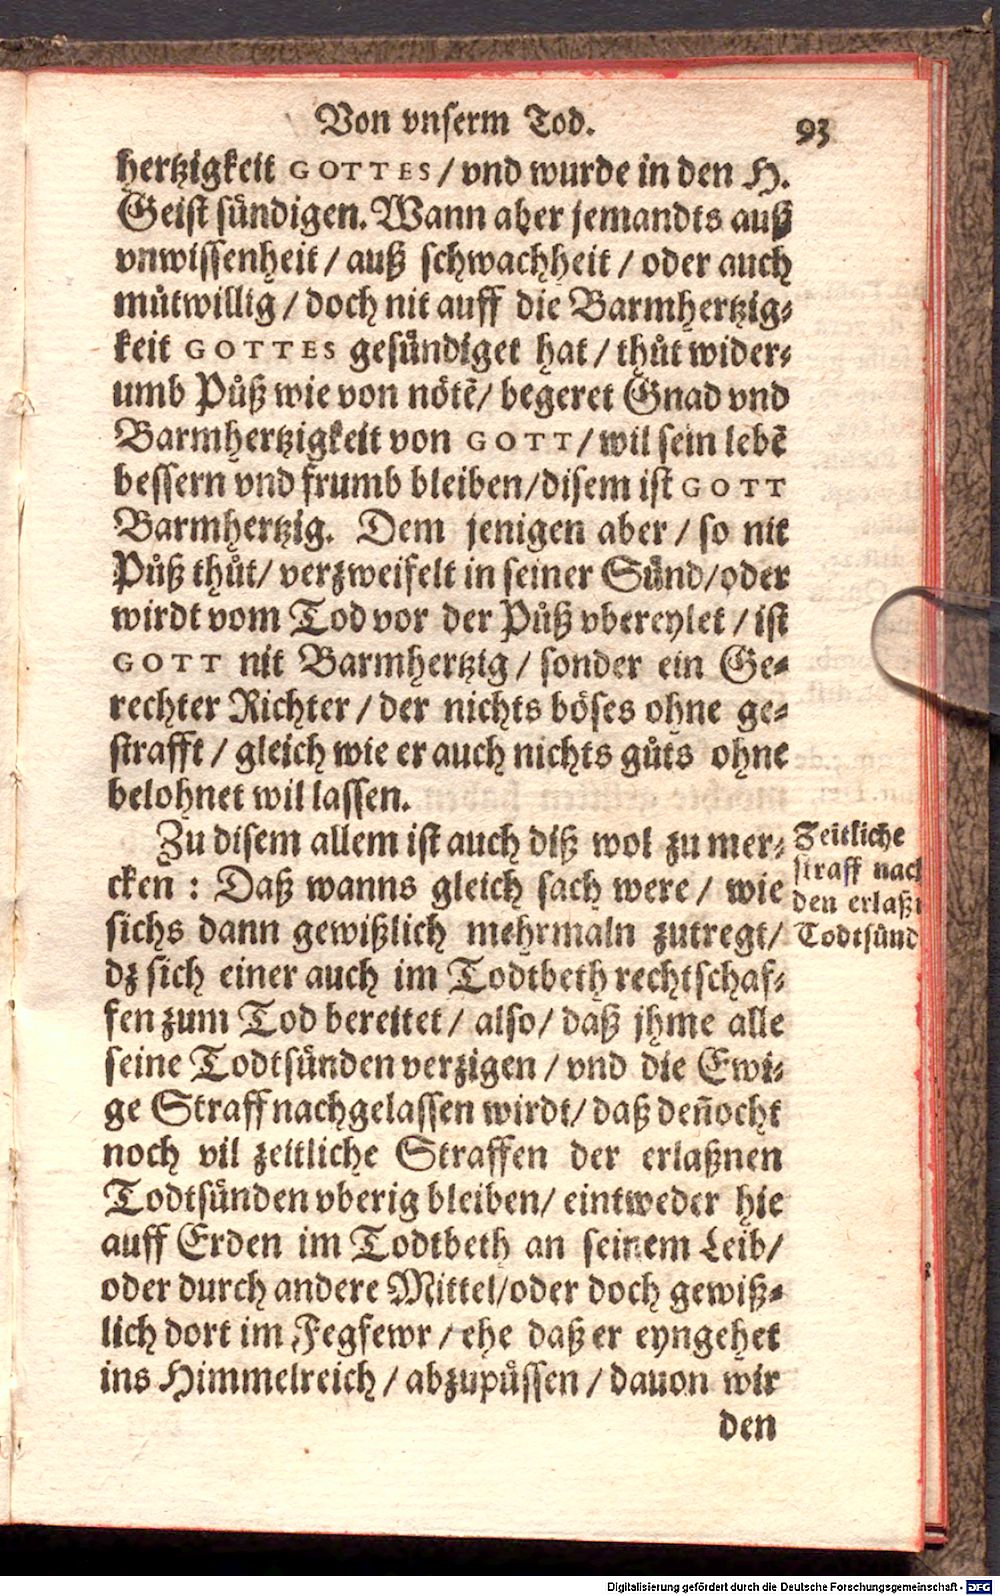 Von vnserm Tod. 93
hertzigkeit GOTTES / vnd wurde in den H.
Geist sündigen. Wann aber jemandts auß
vnwissenheit / auß schwachheit / oder auch
můtwillig / doch nit auff die Barmhertzig-
keit GOTTES gesündiget hat / thůt wider-
umb Půß wie von nötẽ / begeret Gnad vnd
Barmhertzigkeit von GOTT / wil sein lebẽ
bessern vnd frumb bleiben / disem ist GOTT
Barmhertzig. Dem jenigen aber / so nit
Půß thůt / verzweifelt in seiner Sünd / oder
wirdt vom Tod vor der Půß vbereylet / ist
GOTT nit Barmhertzig / sonder ein Ge-
rechter Richter / der nichts böses ohne ge-
strafft / gleich wie er auch nichts gůts ohne
belohnet wil lassen.
Zu disem allem ist auch diß wol zu mer-
cken : Daß wanns gleich sach were / wie
sichs dann gewißlich mehrmaln zutregt /
dz sich einer auch im Todtbeth rechtschaf-
fen zum Tod bereitet / also / daß jhme alle
seine Todtsünden verzigen / vnd die Ewi-
ge Straff nachgelassen wirdt / daß deñocht
noch vil zeitliche Straffen der erlaßnen
Todtsünden vberig bleiben / eintweder hie
auff Erden im Todtbeth an seinem Leib /
oder durch andere Mittel / oder doch gewiß-
lich dort im Fegfewr / ehe daß er eyngehet
ins Himmelreich / abzupüssen / dauon wir
den
Zeitliche
straff nach
den erlaßn
Todtsünd
Digitalisierung gefördert durch die Deutsche Forschungsgemeinschaft - DFG